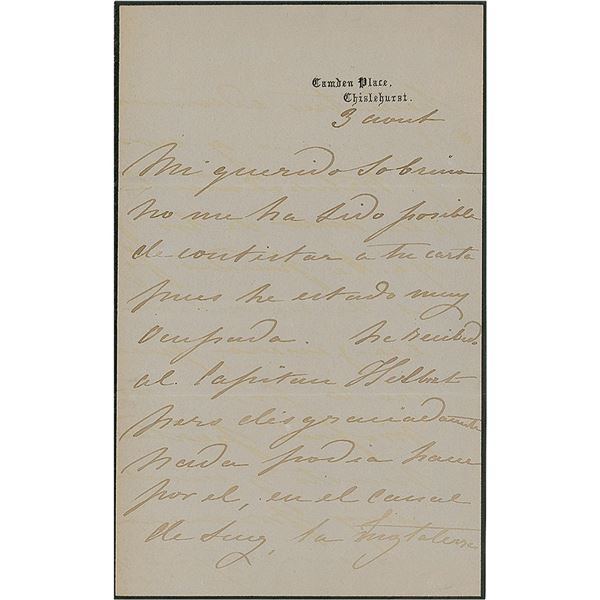 Camden Place,
Chislehurst.
3 aout
Mi querido Sobrino
no me ha sido posible
de contestar a tu carta
pues he estado muy
Ocupada. he recibido
al Capitan
pero desgraciadamente
nada podia hacer
por el, en el canal
de Suez, la Inglaterra